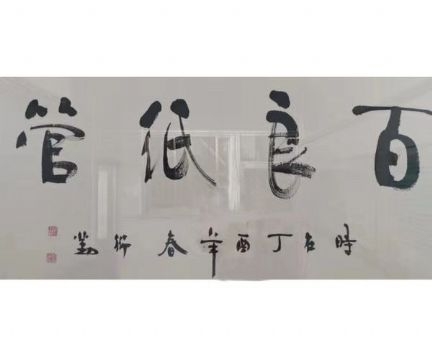 百良纸管
時在丁酉年春